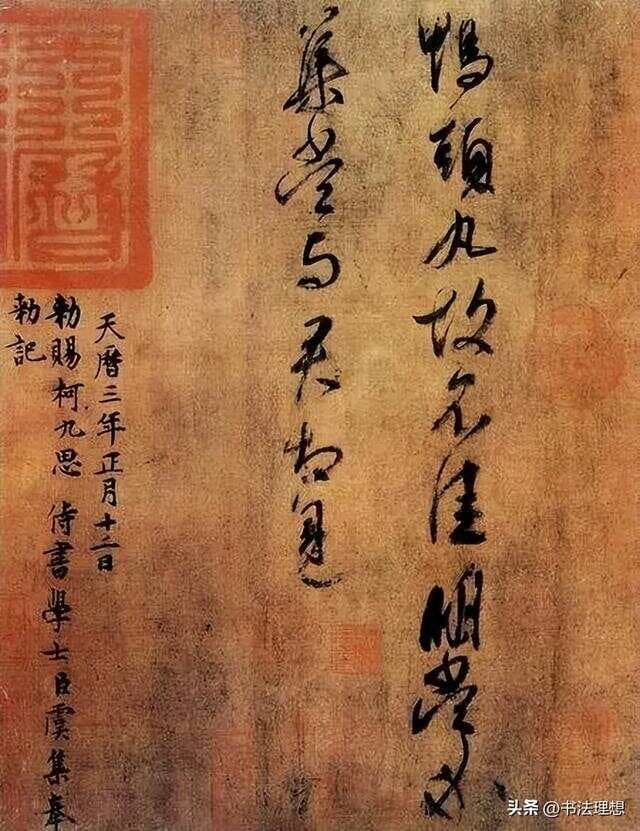 鴨頭丸故不佳明當必
集當与君相見
天曆三年正月十二日
勑賜柯九思 侍書學士臣虞集奉
勑記
天曆
头条 @书法理想